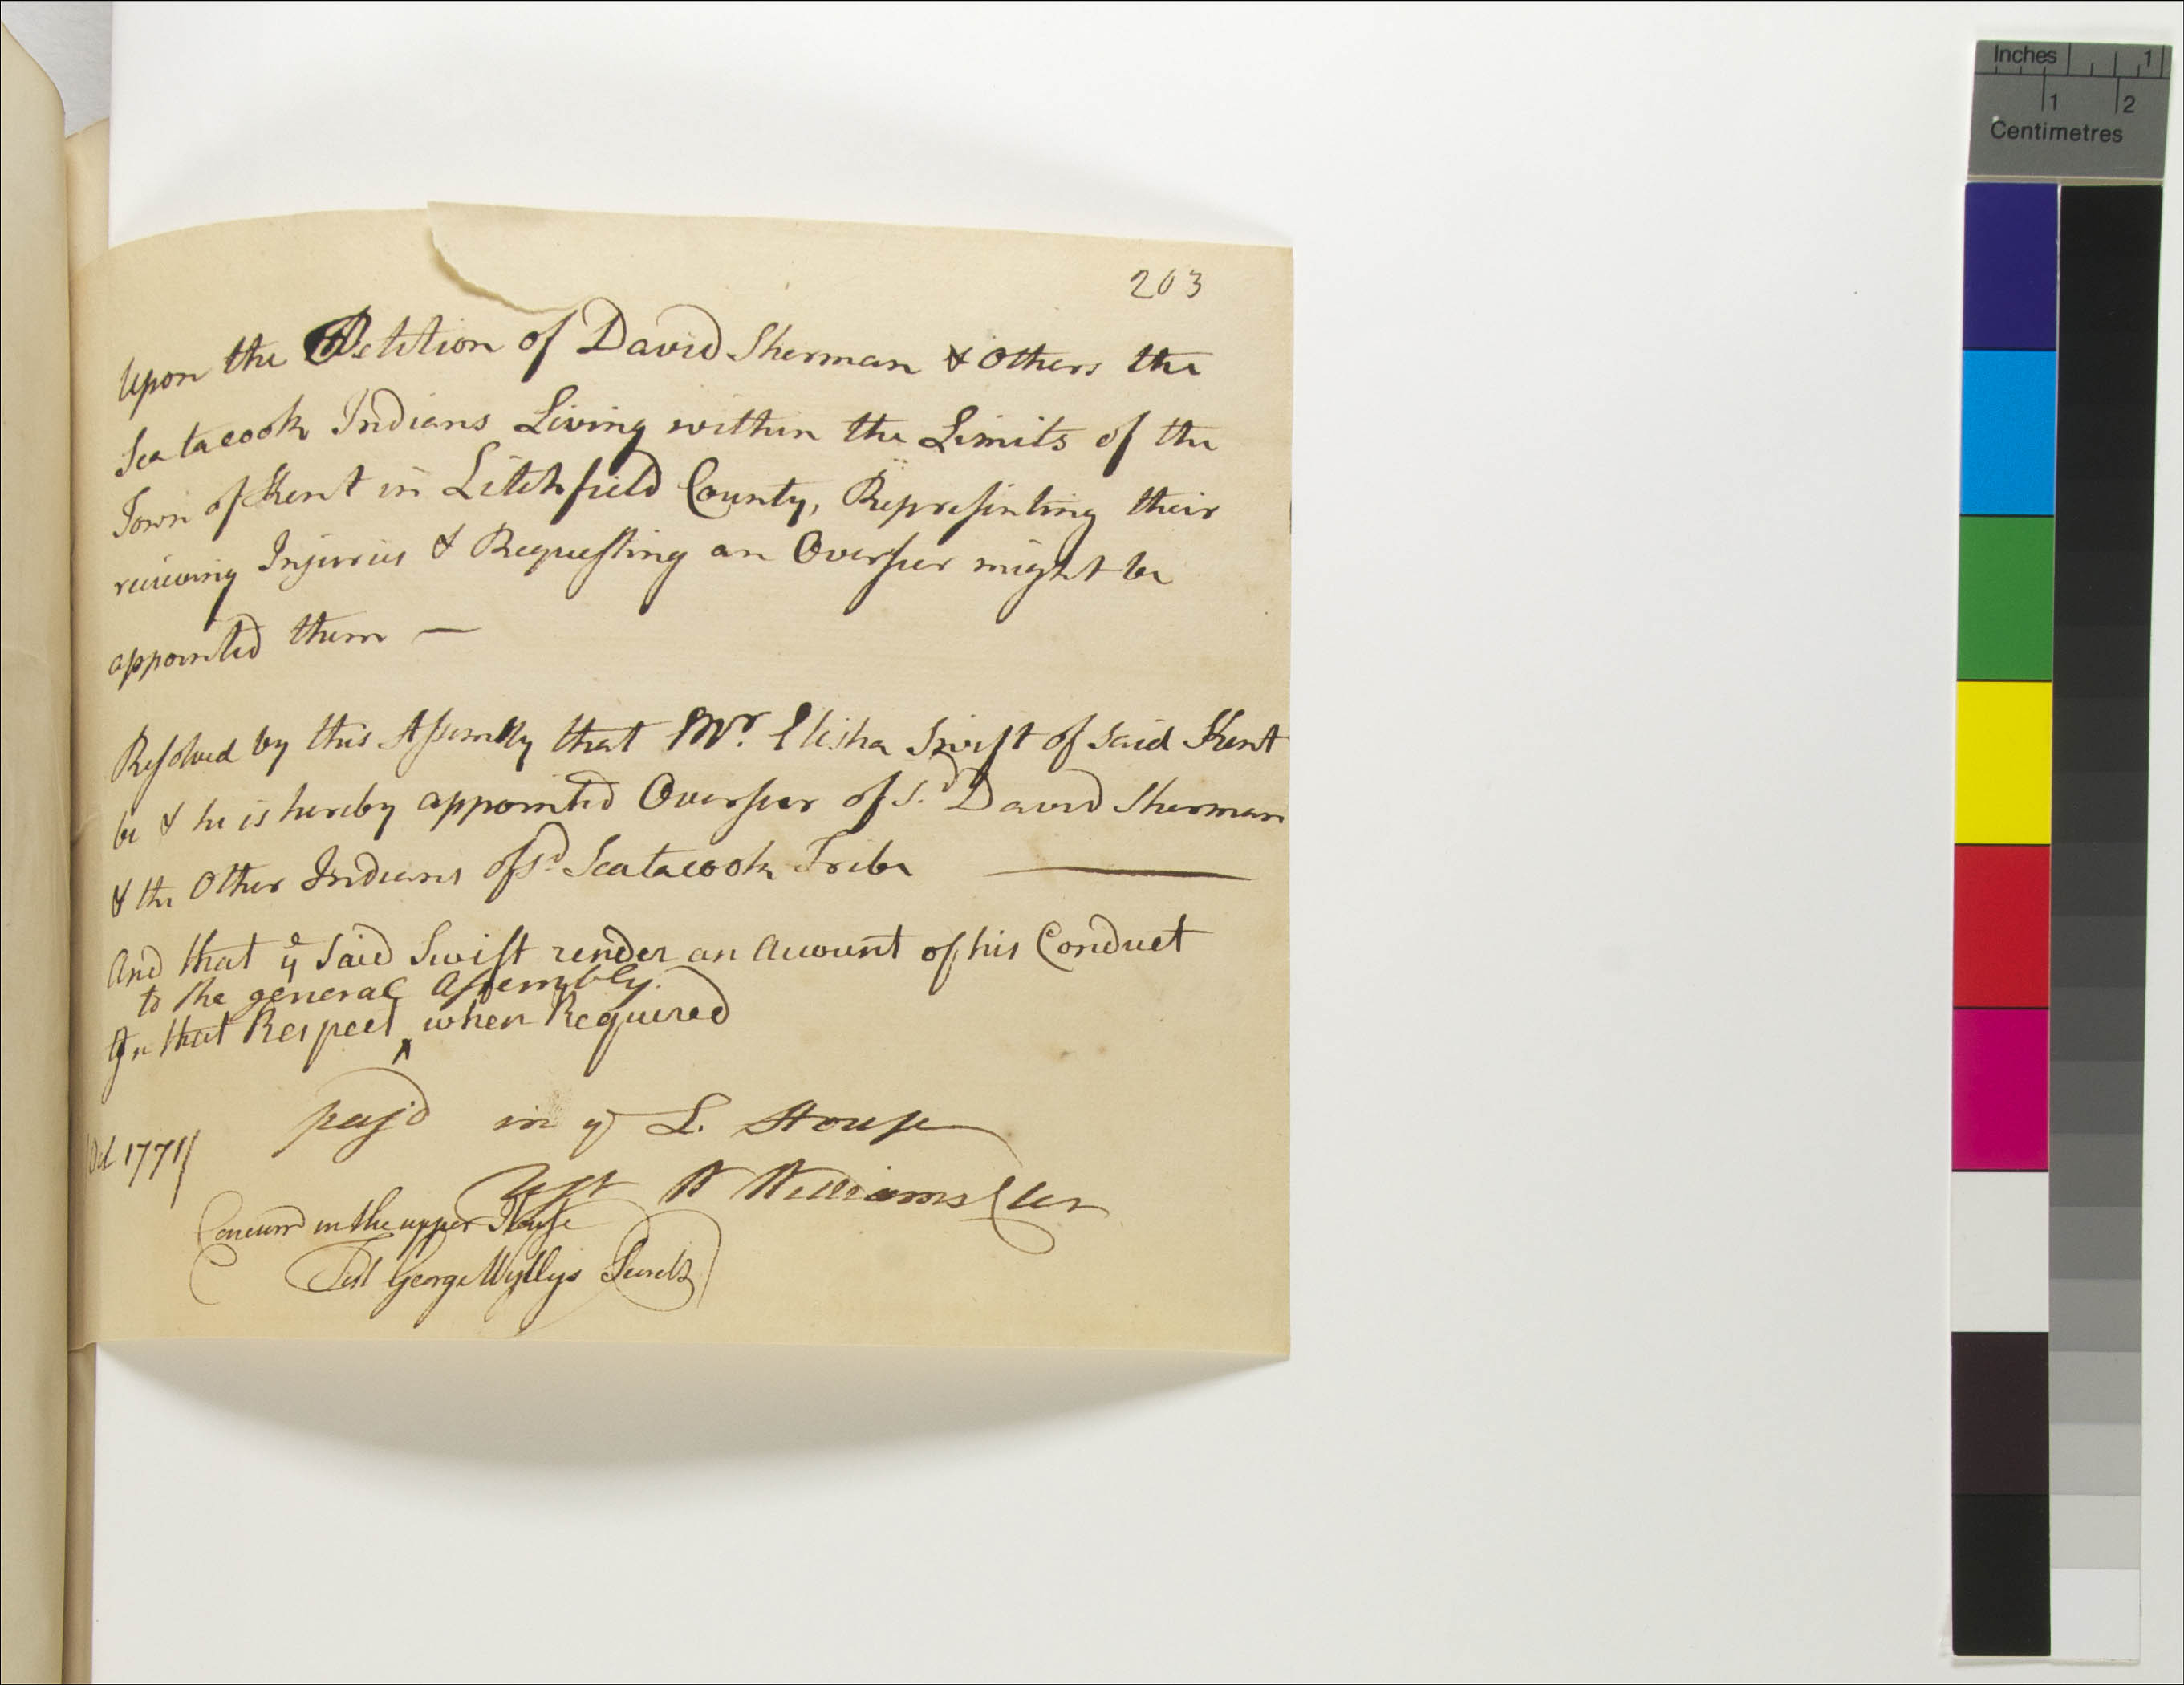 203
Upon the Petition of David Sherman & Others the
Scatacook Indians Living within the Limits of the
Town of Kent in Litchfield County, Represinting their
receiving Injuries & Requesting an Overseer might be
appointed them —
Resolved by this Assembly that Mr. Elisha Swift of said Kent
be & he is hereby appointed Overseer of sd. David Sherman
& the Other Indians of sd. Scatacook Tribe
And that ye said Swift render an account of his Conduct
to the general Assembly.
In that Respect ^ when Required
pass'd in ye L. House
Octr 1771
Test W Williams Cler
Concurrd in the upper House
Test George Wyllys Secrety
Inches 1
1 2
Centimetres